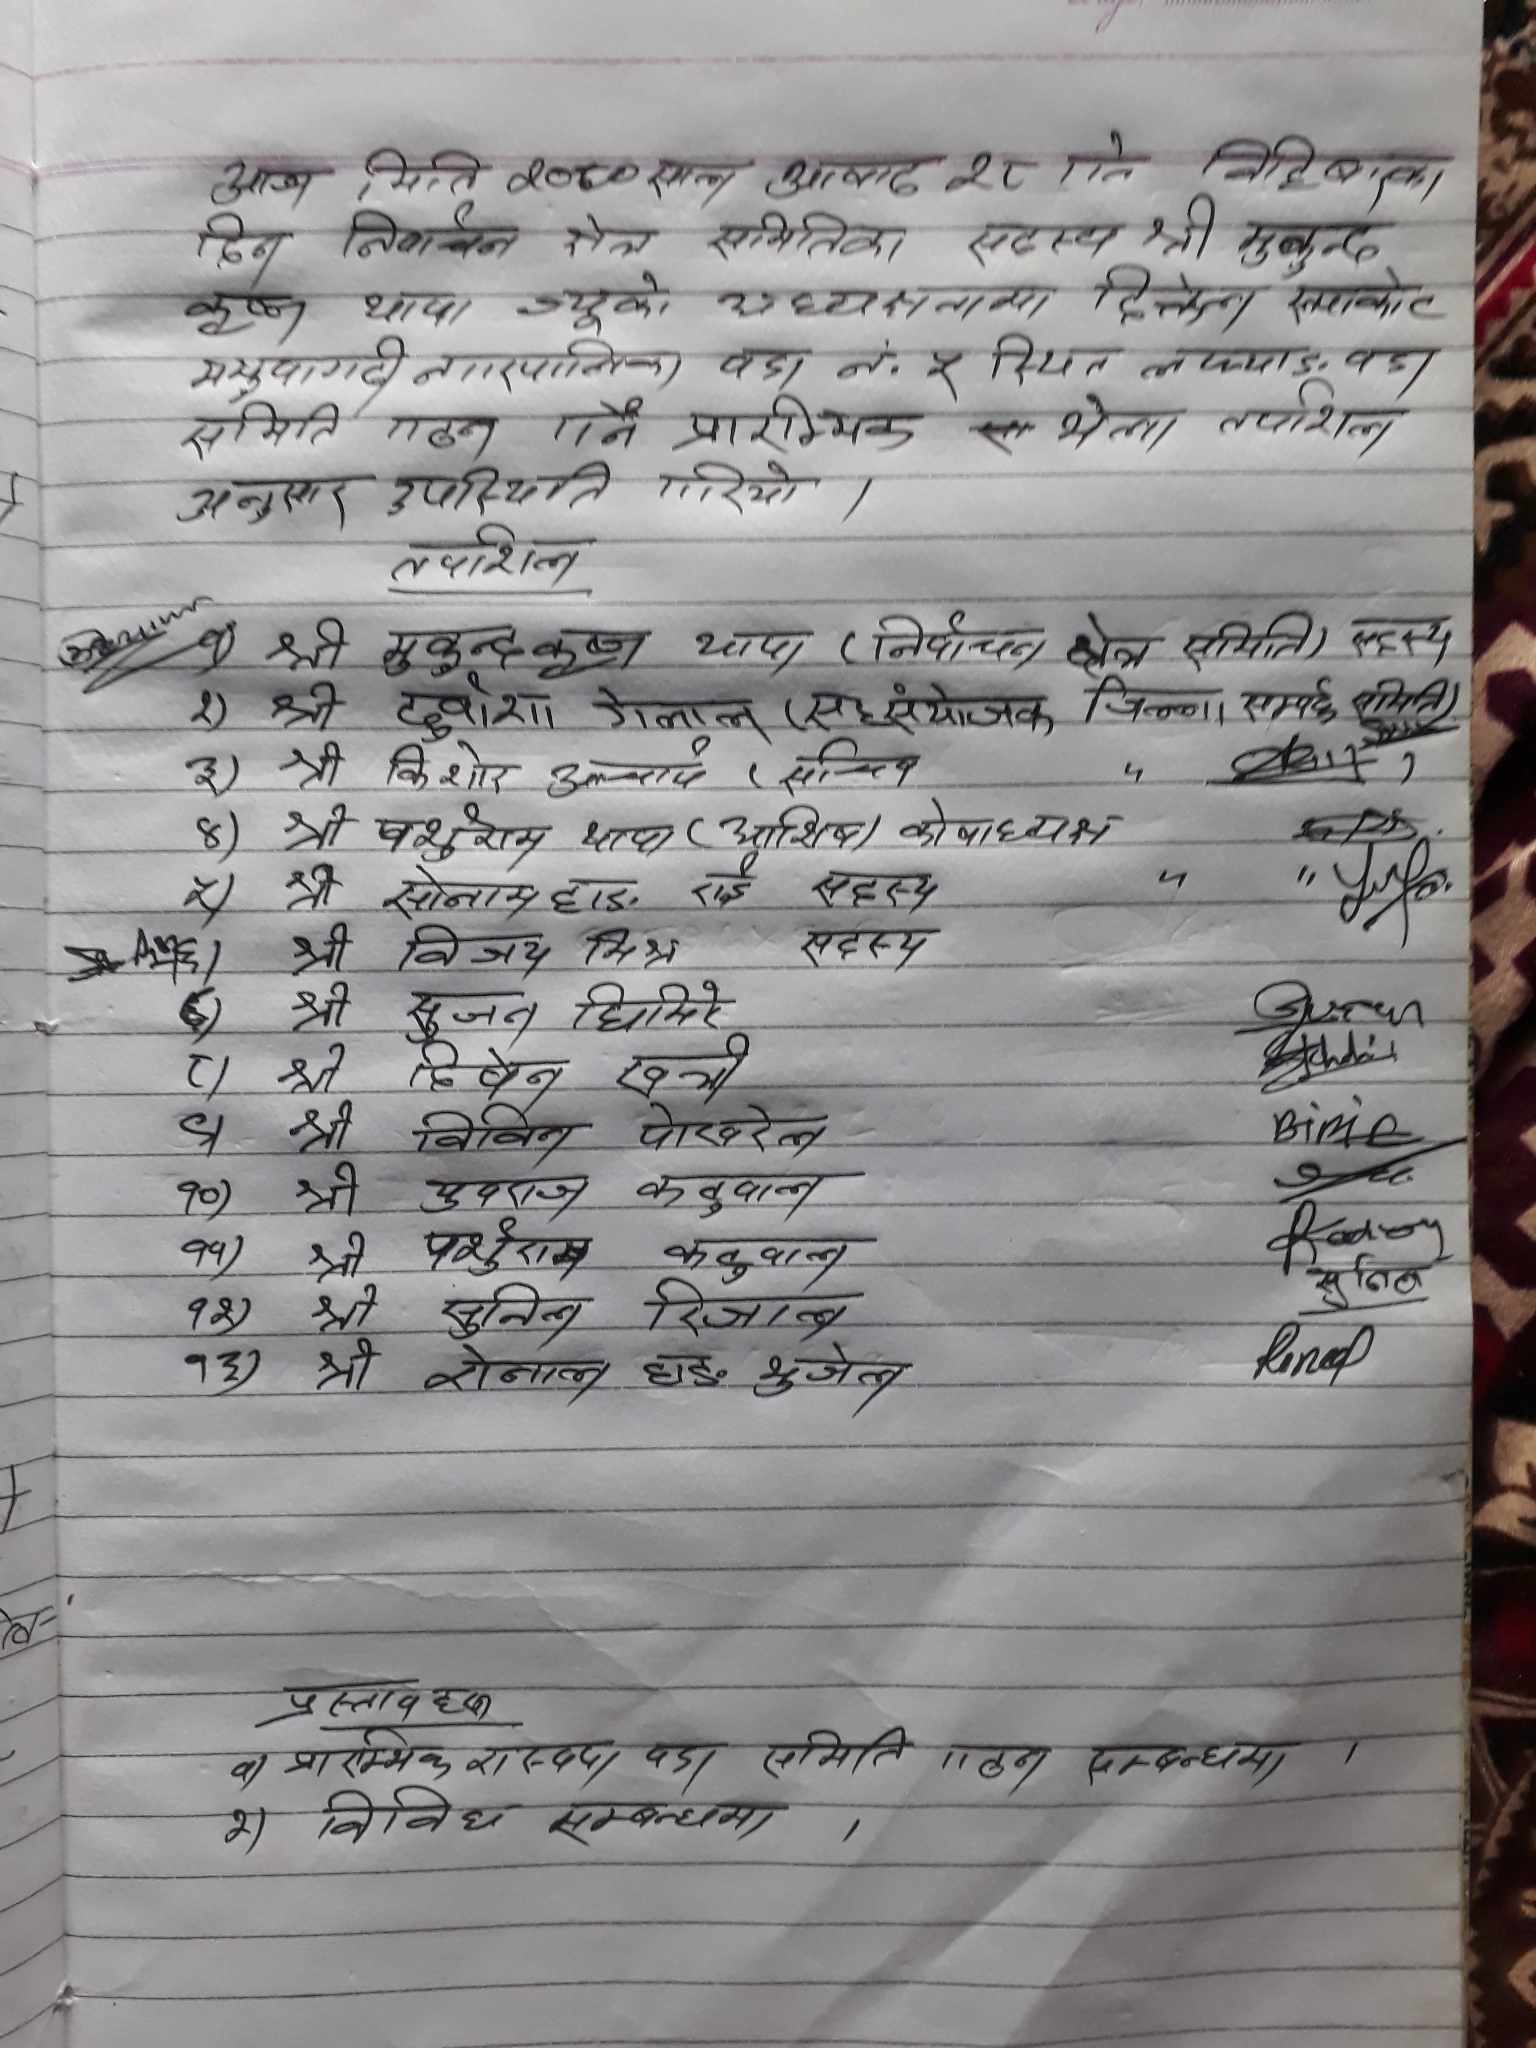 आज मिति २०८० साल आषाढ २८ गते विहिबारका
दिन निर्वाचन क्षेत्र समितिका सदस्य श्री मुकुन्द
कृष्ण थापा ज्यूको अध्यक्षतामा दिक्तेल रुपाकोट
मझुवागढी नगरपालिका वडा नं. ५ स्थित लफ्याङ वडा
समिति गठन गर्न प्रारम्भिक भेला तपशिल
अनुसार उपस्थिति गरियो ।
तपशिल
१) श्री मुकुन्दकृष्ण थापा (निर्वाचन क्षेत्र समिति) सदस्य
२) श्री दुर्वाशा गेलाल (सहसंयोजक जिल्ला सम्पर्क समिति)
३) श्री किशोर आचार्य (सचिव "
४) श्री पर्शुराम थापा (आशिष) कोषाध्यक्ष
५) श्री सोनाम हाङ राई सदस्य " "
६) श्री विजय मिश्र सदस्य
श्री सुजन घिमिरे
८) श्री दिपेन खत्री
९) श्री विपिन पोखरेल BiPiN
१०) श्री युवराज कटुवाल
११) श्री पर्शुराम कटुवाल
१२) श्री सुनिल रिजाल सुनिल
१३) श्री रोनाल हाङ भुजेल Ronal
प्रस्तावहरू
१) प्रारम्भिक रास्वपा वडा समिति गठन सम्बन्धमा ।
२) विविध सम्बन्धमा ।